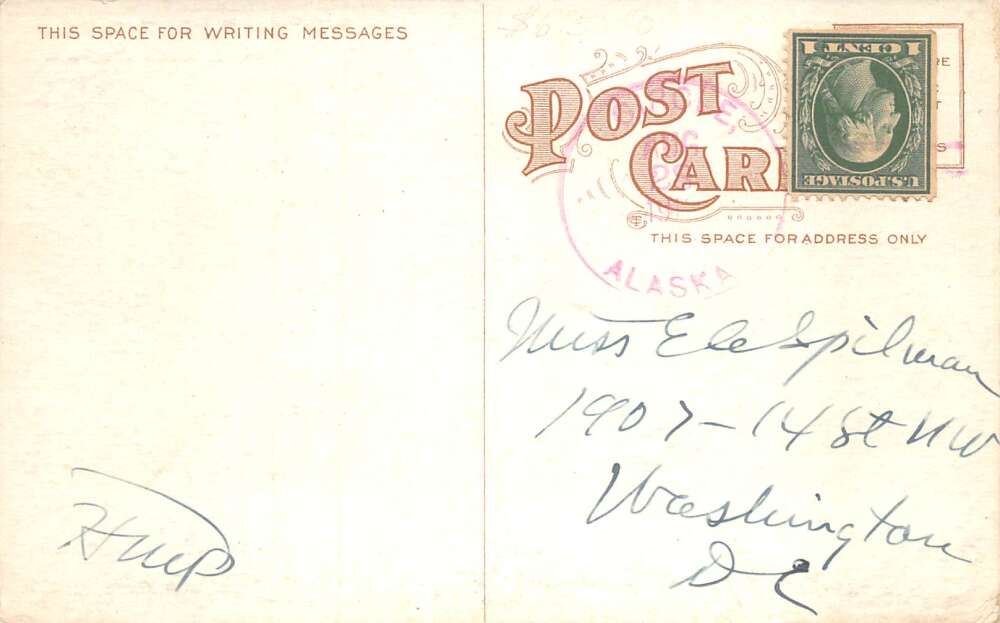 THIS SPACE FOR WRITING MESSAGES
POST CARD
THIS SPACE FOR ADDRESS ONLY
1 CENT 1
U.S. POSTAGE
ALASKA
Miss Ele Spilman
1907 - 14 St NW
Washington
DC